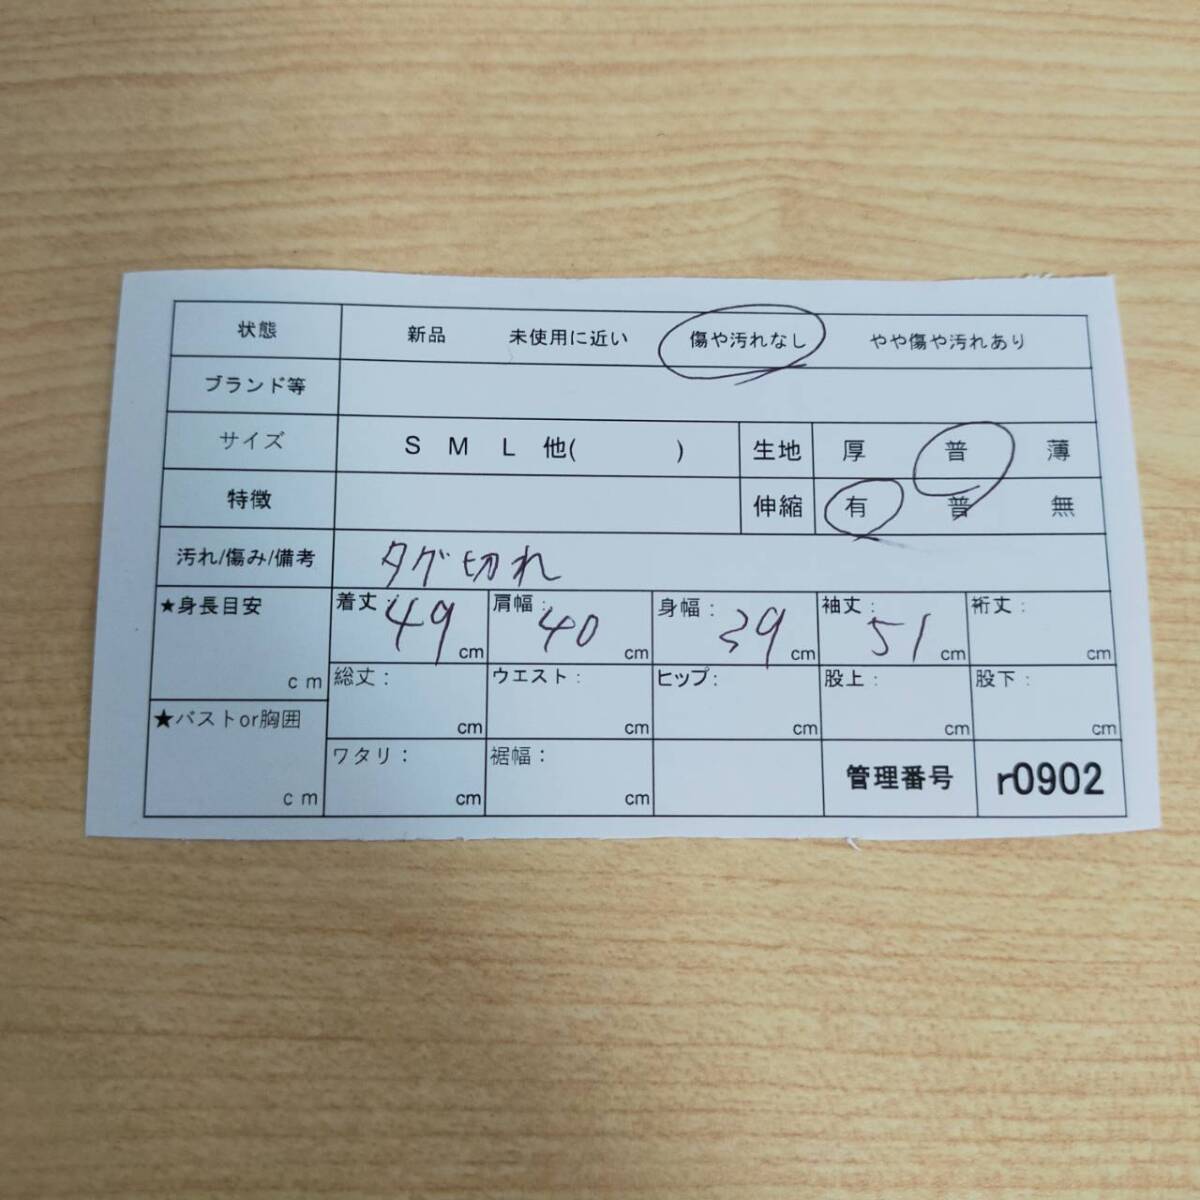 状態 新品 未使用に近い 傷や汚れなし やや傷や汚れあり
ブランド等
サイズ S M L 他( ) 生地 厚 普 薄
特徴 伸縮 有 普 無
汚れ/傷み/備考 タグ切れ
★身長目安 cm
着丈: 49 cm 肩幅: 40 cm 身幅: 39 cm 袖丈: 51 cm 裄丈: cm
総丈: cm ウエスト: cm ヒップ: cm 股上: cm 股下: cm
★バストor胸囲 cm
ワタリ: cm 裾幅: cm 管理番号 r0902